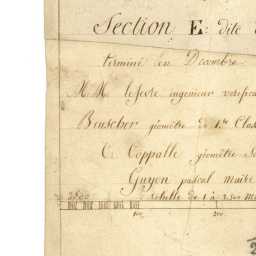 Section E: dite
terminé en Décembre
M.M. lefevre ingenieur verifica
Beuscher géomètre de 1re Clas
C. Coppalle géomètre Se
Guyon pascal maire
Echelle de 1 à 2500 M
100 200